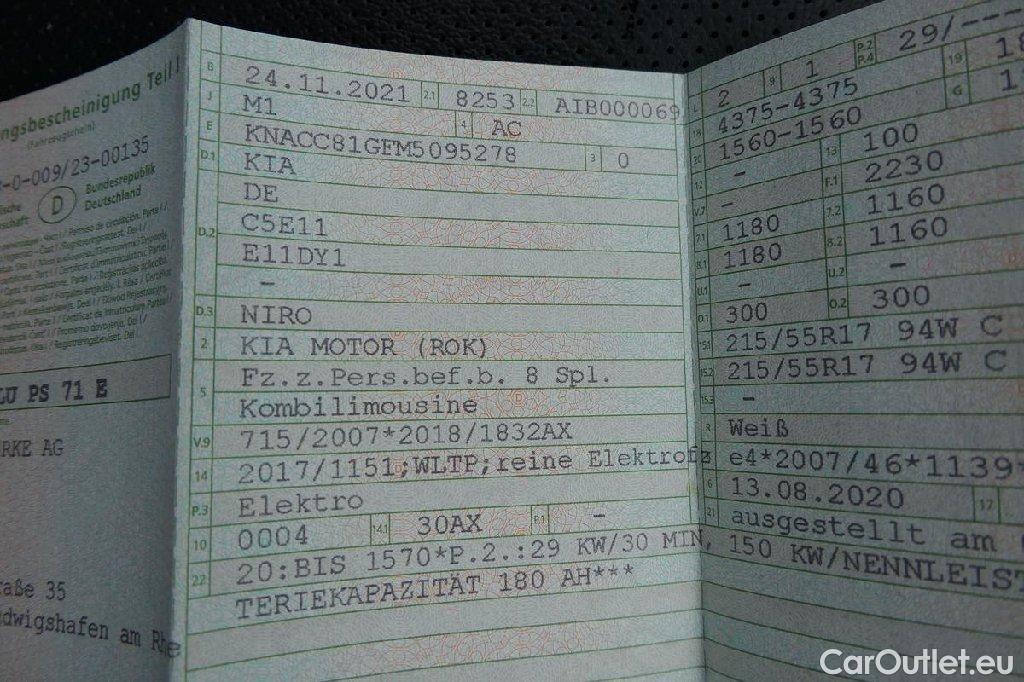 ngsbescheinigung Teil I
(Fahrzeugschein)
-0-009/23-00135
D
Bundesrepublik
Deutschland
LU PS 71 E
RKE AG
raße 35
udwigshafen am Rhe
B 24.11.2021 2.1 8253 2.2 AIB000069
J M1 4 AC
E KNACC81GEM5095278 3 0
D.1 KIA
DE
D.2 C5E11
E11DY1
–
D.3 NIRO
2 KIA MOTOR (ROK)
5 Fz.z.Pers.bef.b. 8 Spl.
Kombilimousine
V.9 715/2007*2018/1832AX
14 2017/1151;WLTP;reine Elektrofz
P.3 Elektro
10 0004 14.1 30AX P.1 –
22 20:BIS 1570*P.2.:29 KW/30 MIN, 150 KW/NENNLEIST
TERIEKAPAZITÄT 180 AH***
L 2 9 1 P.2 P.4 29/---
18 4375-4375 19 18
20 1560-1560 G 1
12 – 13 100
V.7 – F.1 2230
7.1 1180 7.2 1160
8.1 1180 8.2 1160
U.1 – U.2 –
O.1 300 O.2 300
15.1 215/55R17 94W C
15.2 215/55R17 94W C
15.3 –
R Weiß
e4*2007/46*1139*
6 13.08.2020 17
21 ausgestellt am
CarOutlet.eu